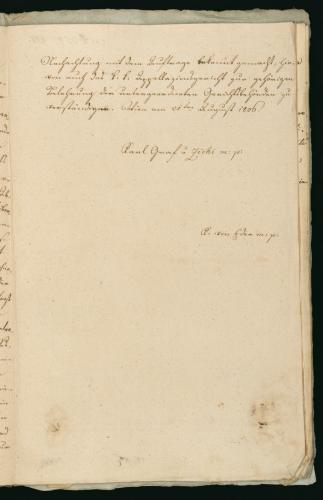 Nachachtung mit dem Beysatze bekannt gemacht, hie-
von auch das k. k. Appellazionsgericht zur gehörigen
Belehrung der untergeordneten Gerichtsbehörden zu
verständigen. Wien am August 1806
Karl Graf v Zichi m: p.
v. Eder m: p.